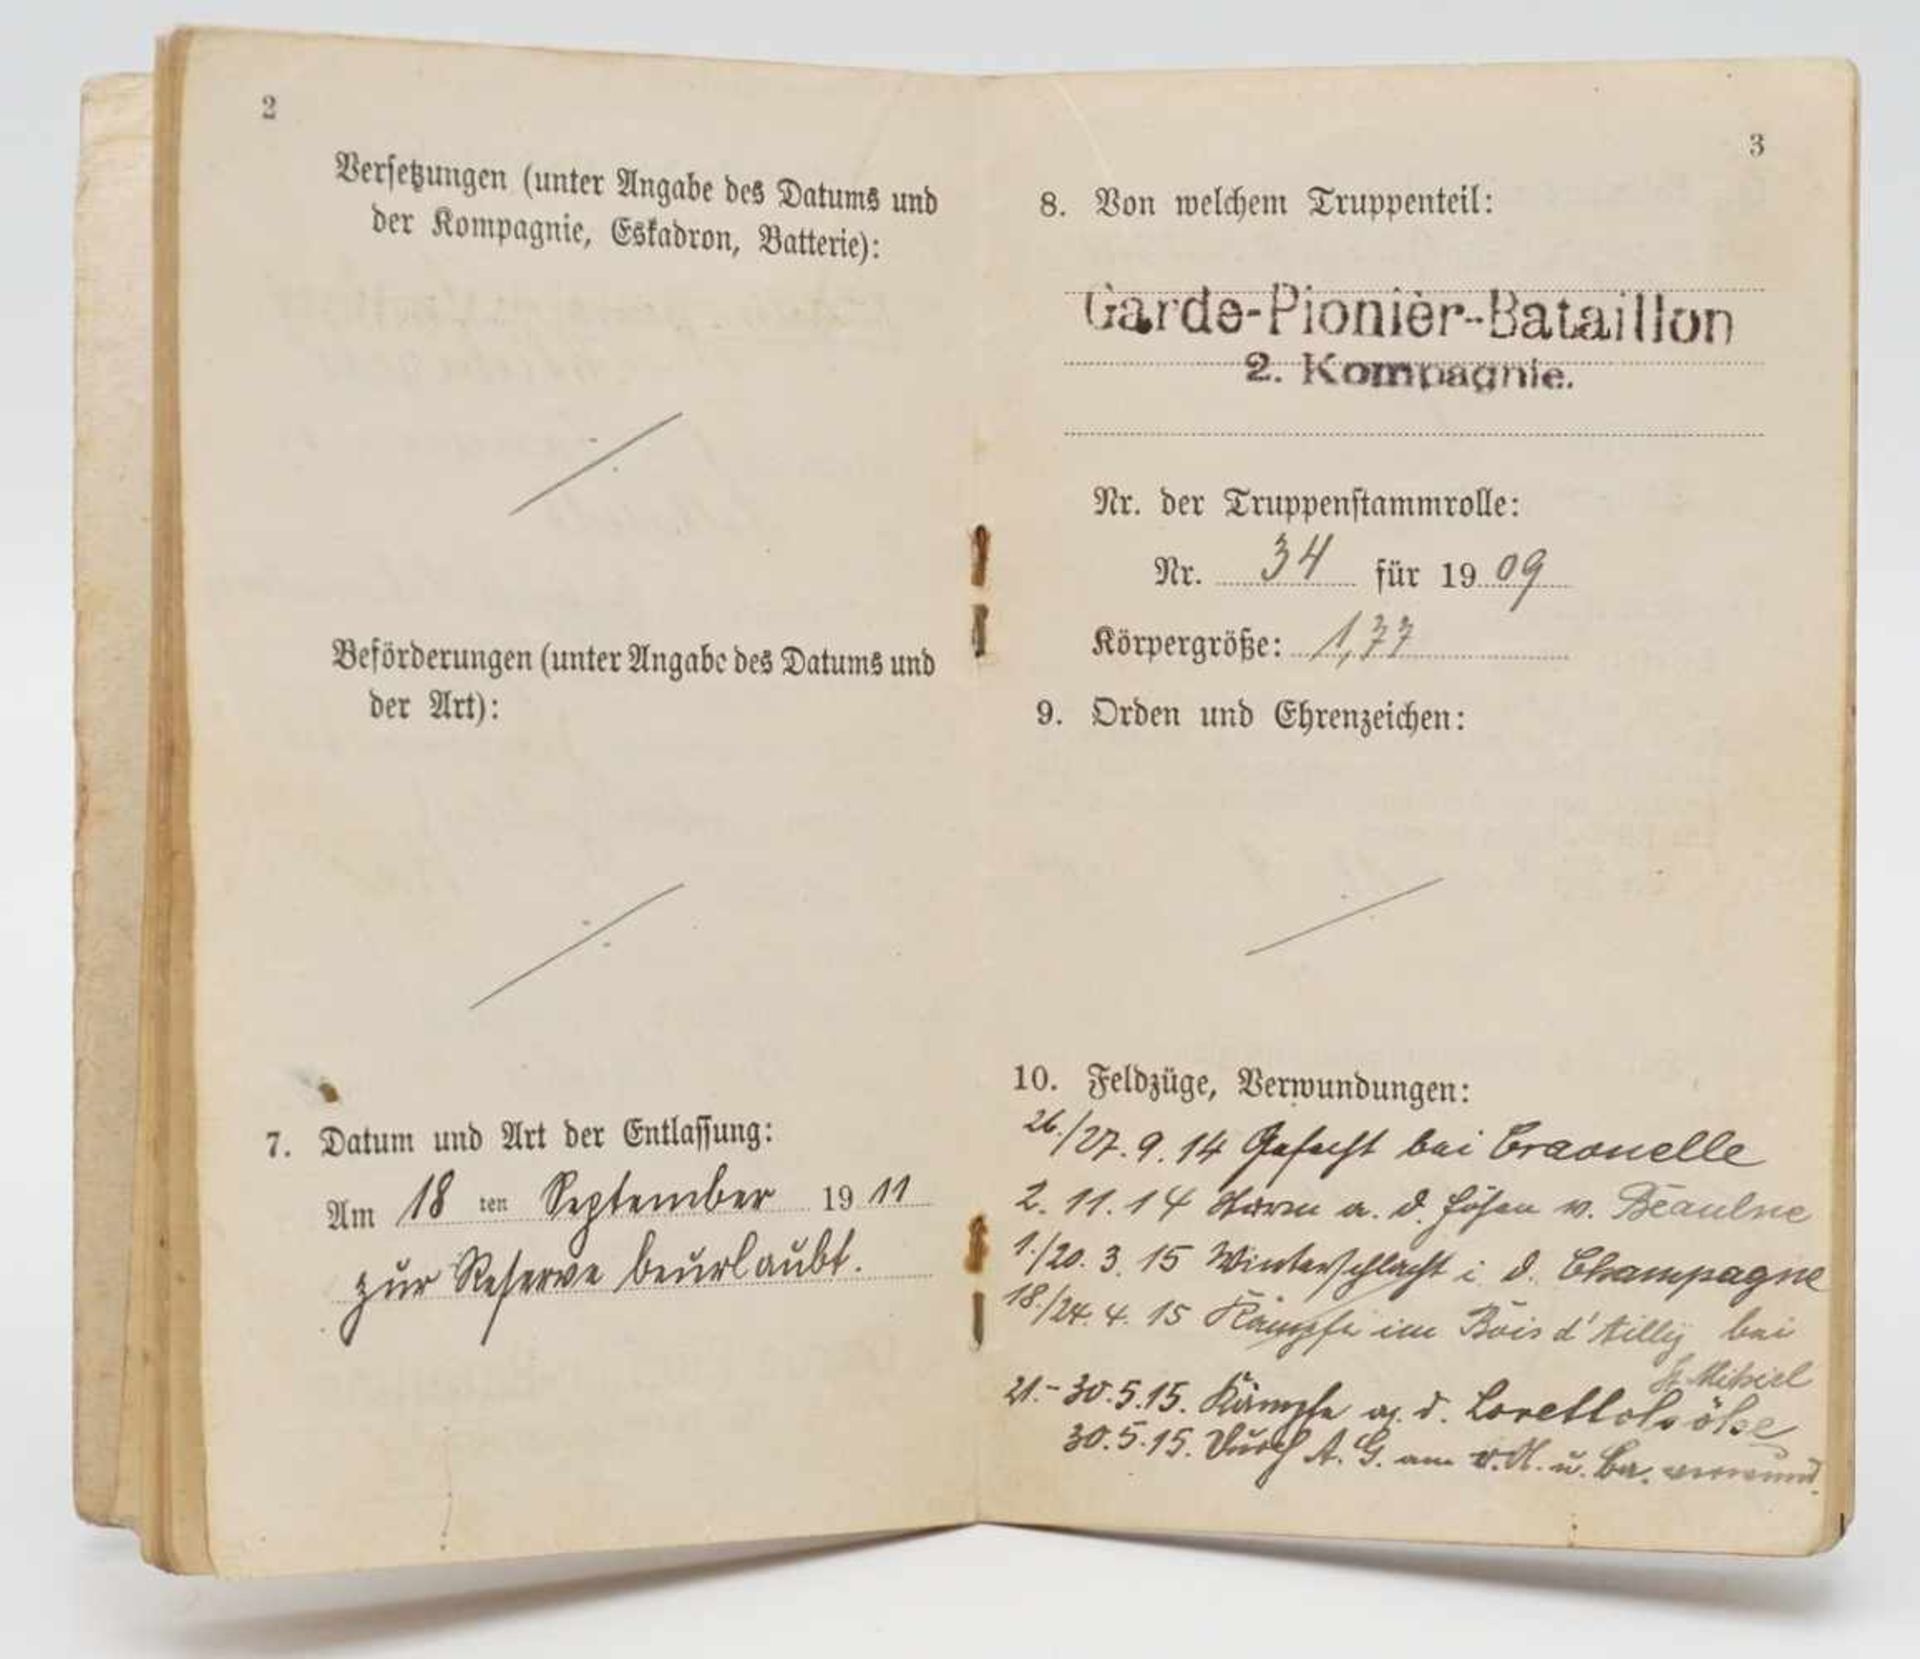 2
Versetzungen (unter Angabe des Datums und
der Kompagnie, Eskadron, Batterie):
Beförderungen (unter Angabe des Datums und
der Art):
7. Datum und Art der Entlassung:
Am 18 ten September 1911
zur Reserve beurlaubt.
3
8. Von welchem Truppenteil:
Garde-Pionier-Bataillon
2. Kompagnie.
Nr. der Truppenstammrolle:
Nr. 34 für 1909
Körpergröße: 1,77
9. Orden und Ehrenzeichen:
10. Feldzüge, Verwundungen:
26./27. 9. 14 Gefecht bei Craonelle
2. 11. 14 a. d. Höhen v. Beaulne
1./20. 3. 15 Winterschlacht i. d. Champagne
18./24. 4. 15 Kämpfe im Bois d'Ailly bei
St. Mihiel
21.-30.5.15. Kämpfe a. d. Lorettohöhe
30.5.15. Durch A. G. am r. u. verwund.